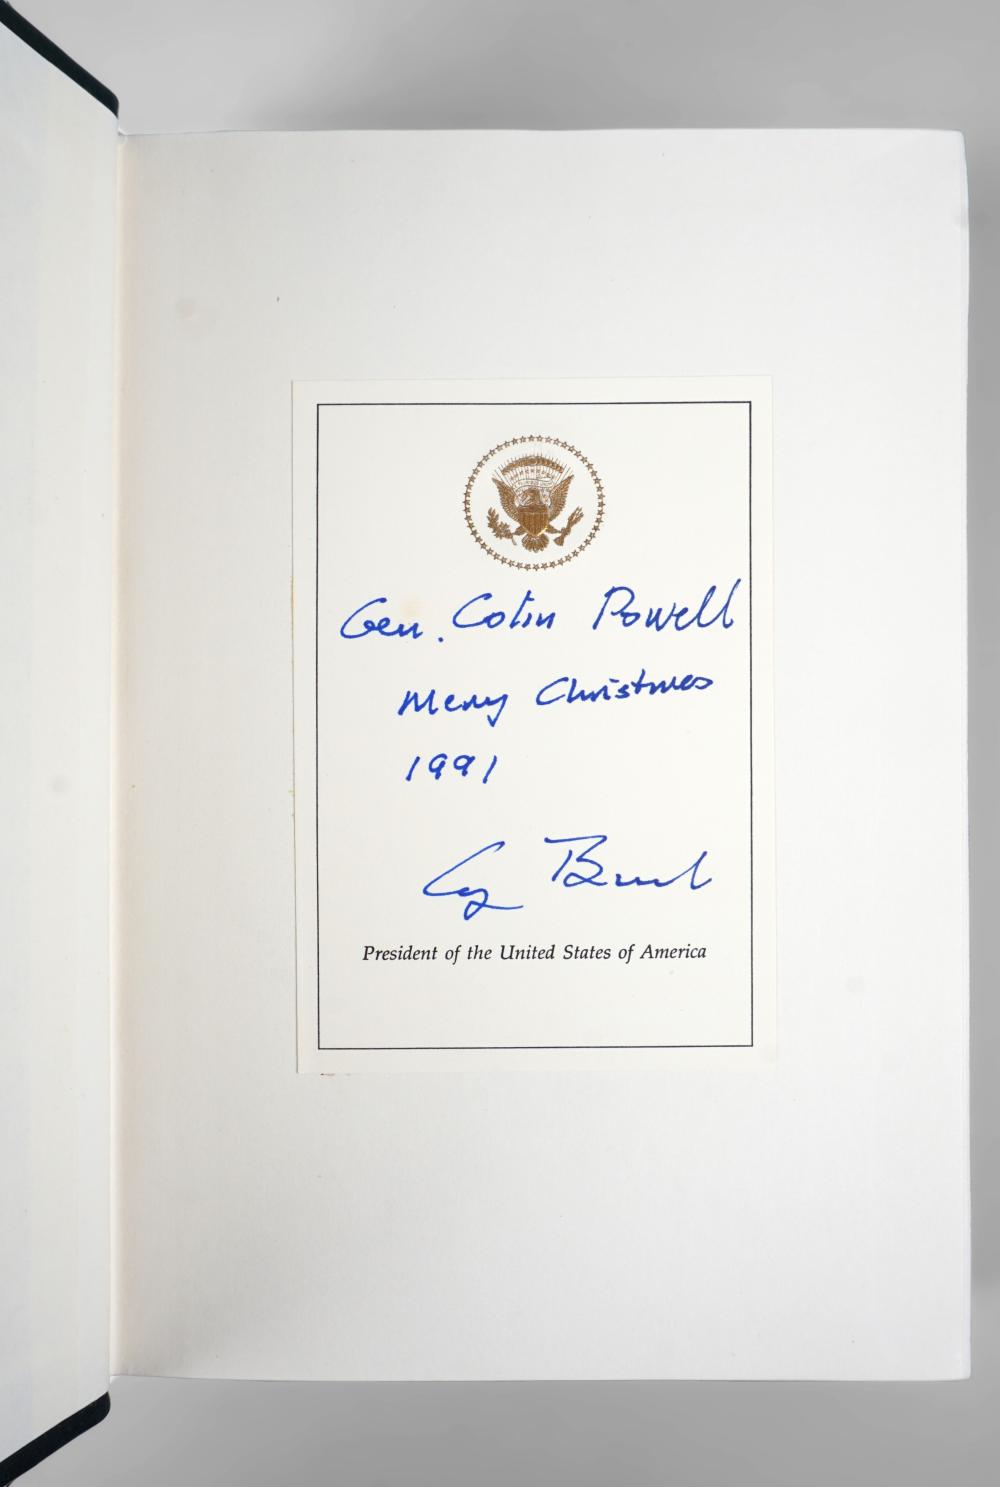 Gen. Colin Powell
Merry Christmas
1991
G Bush
President of the United States of America